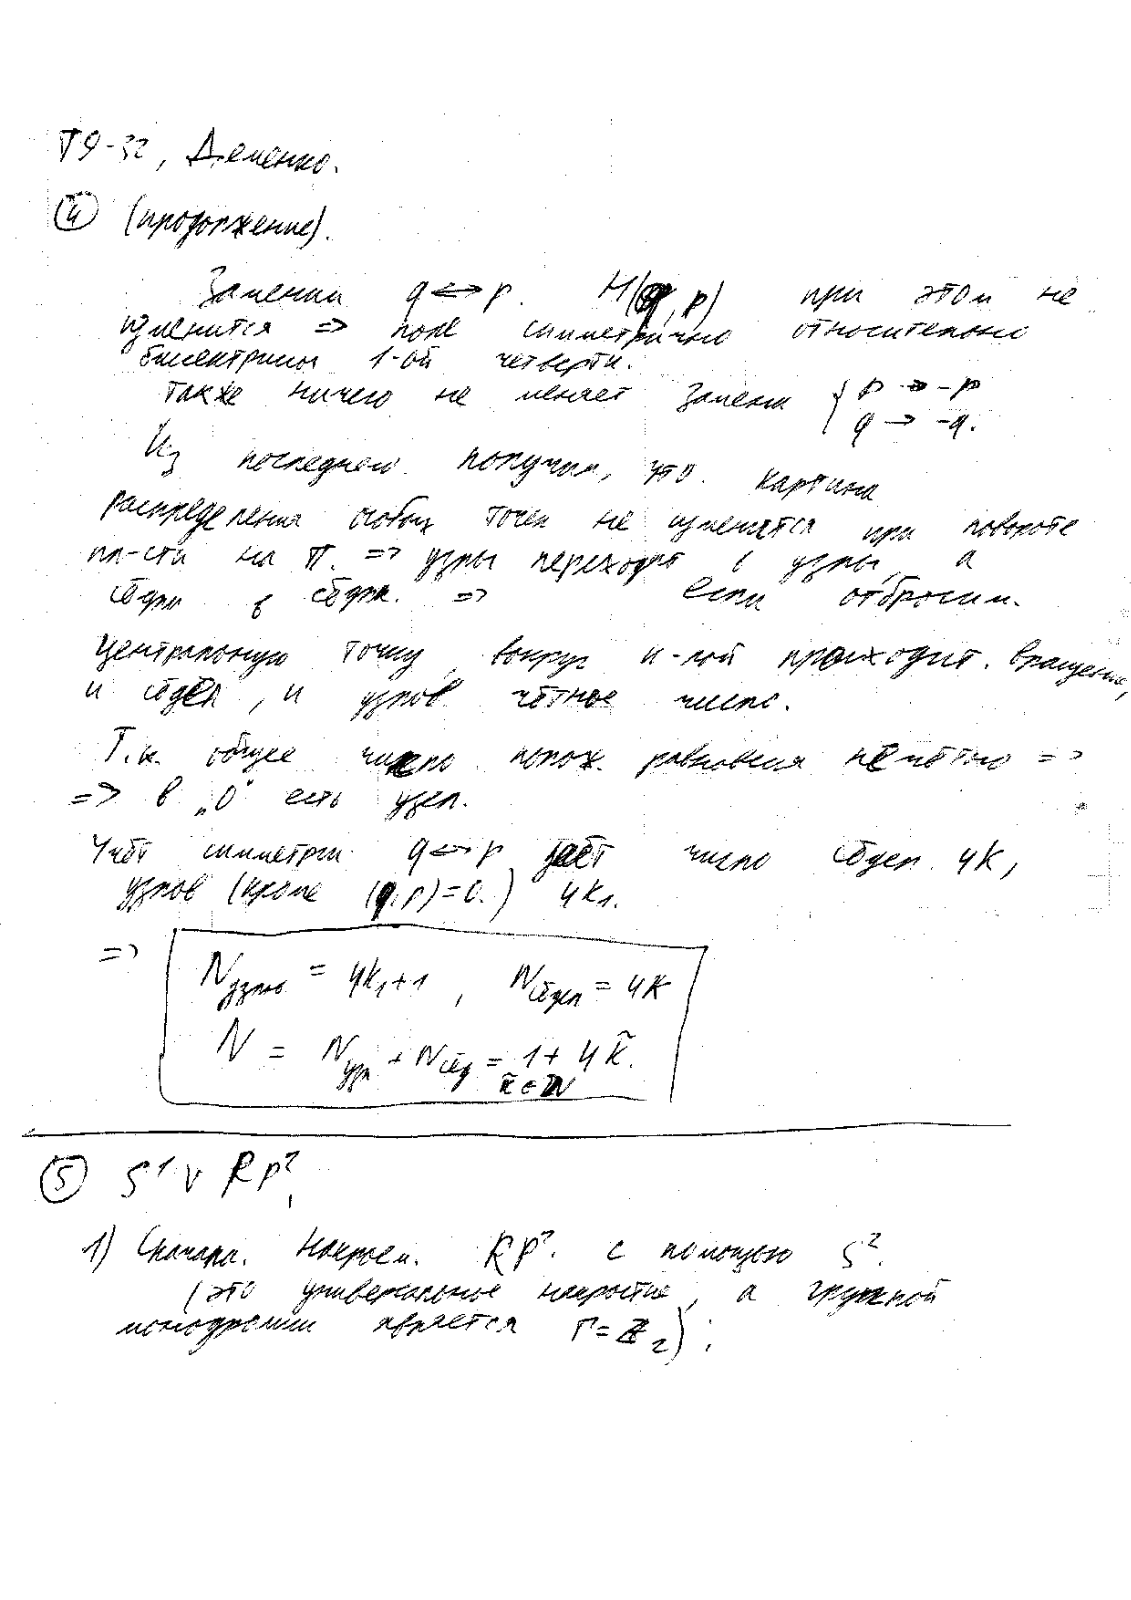 Т9-32, Деменко.
④ (продолжение).
Замении q ↔ p. H(q, p) при этом не
изменится => поле симметрично относительно
биссектрисы 1-ой четверти.
Также ничего не меняет замена { p → -p
q → -q.
Из последнего получим, что картина
распределения особых точек не изменится при повороте
пл-сти на π. => узлы переходят в узлы, а
сёдла в сёдла. => если отбросим
центральную точку, вокруг к-рой происходит вращение,
и сёдел, и узлов чётное число.
Т.к. общее число полож. равновесия нечётно =>
=> в „0" есть узел.
Учёт симметрии q ↔ p даёт число сёдел 4K,
узлов (кроме (q,p)=0.) 4K₁.
=> N узлов = 4k₁+1 , N сёдел = 4K
N = N узл + N сёд = 1 + 4k̃.
k̃ ∈ N
⑤ S¹ ∨ RP²,
1) Сначала. Накроем. RP². с помощью S².
(это универсальное накрытие, а группой
монодромии является Γ = Z₂);